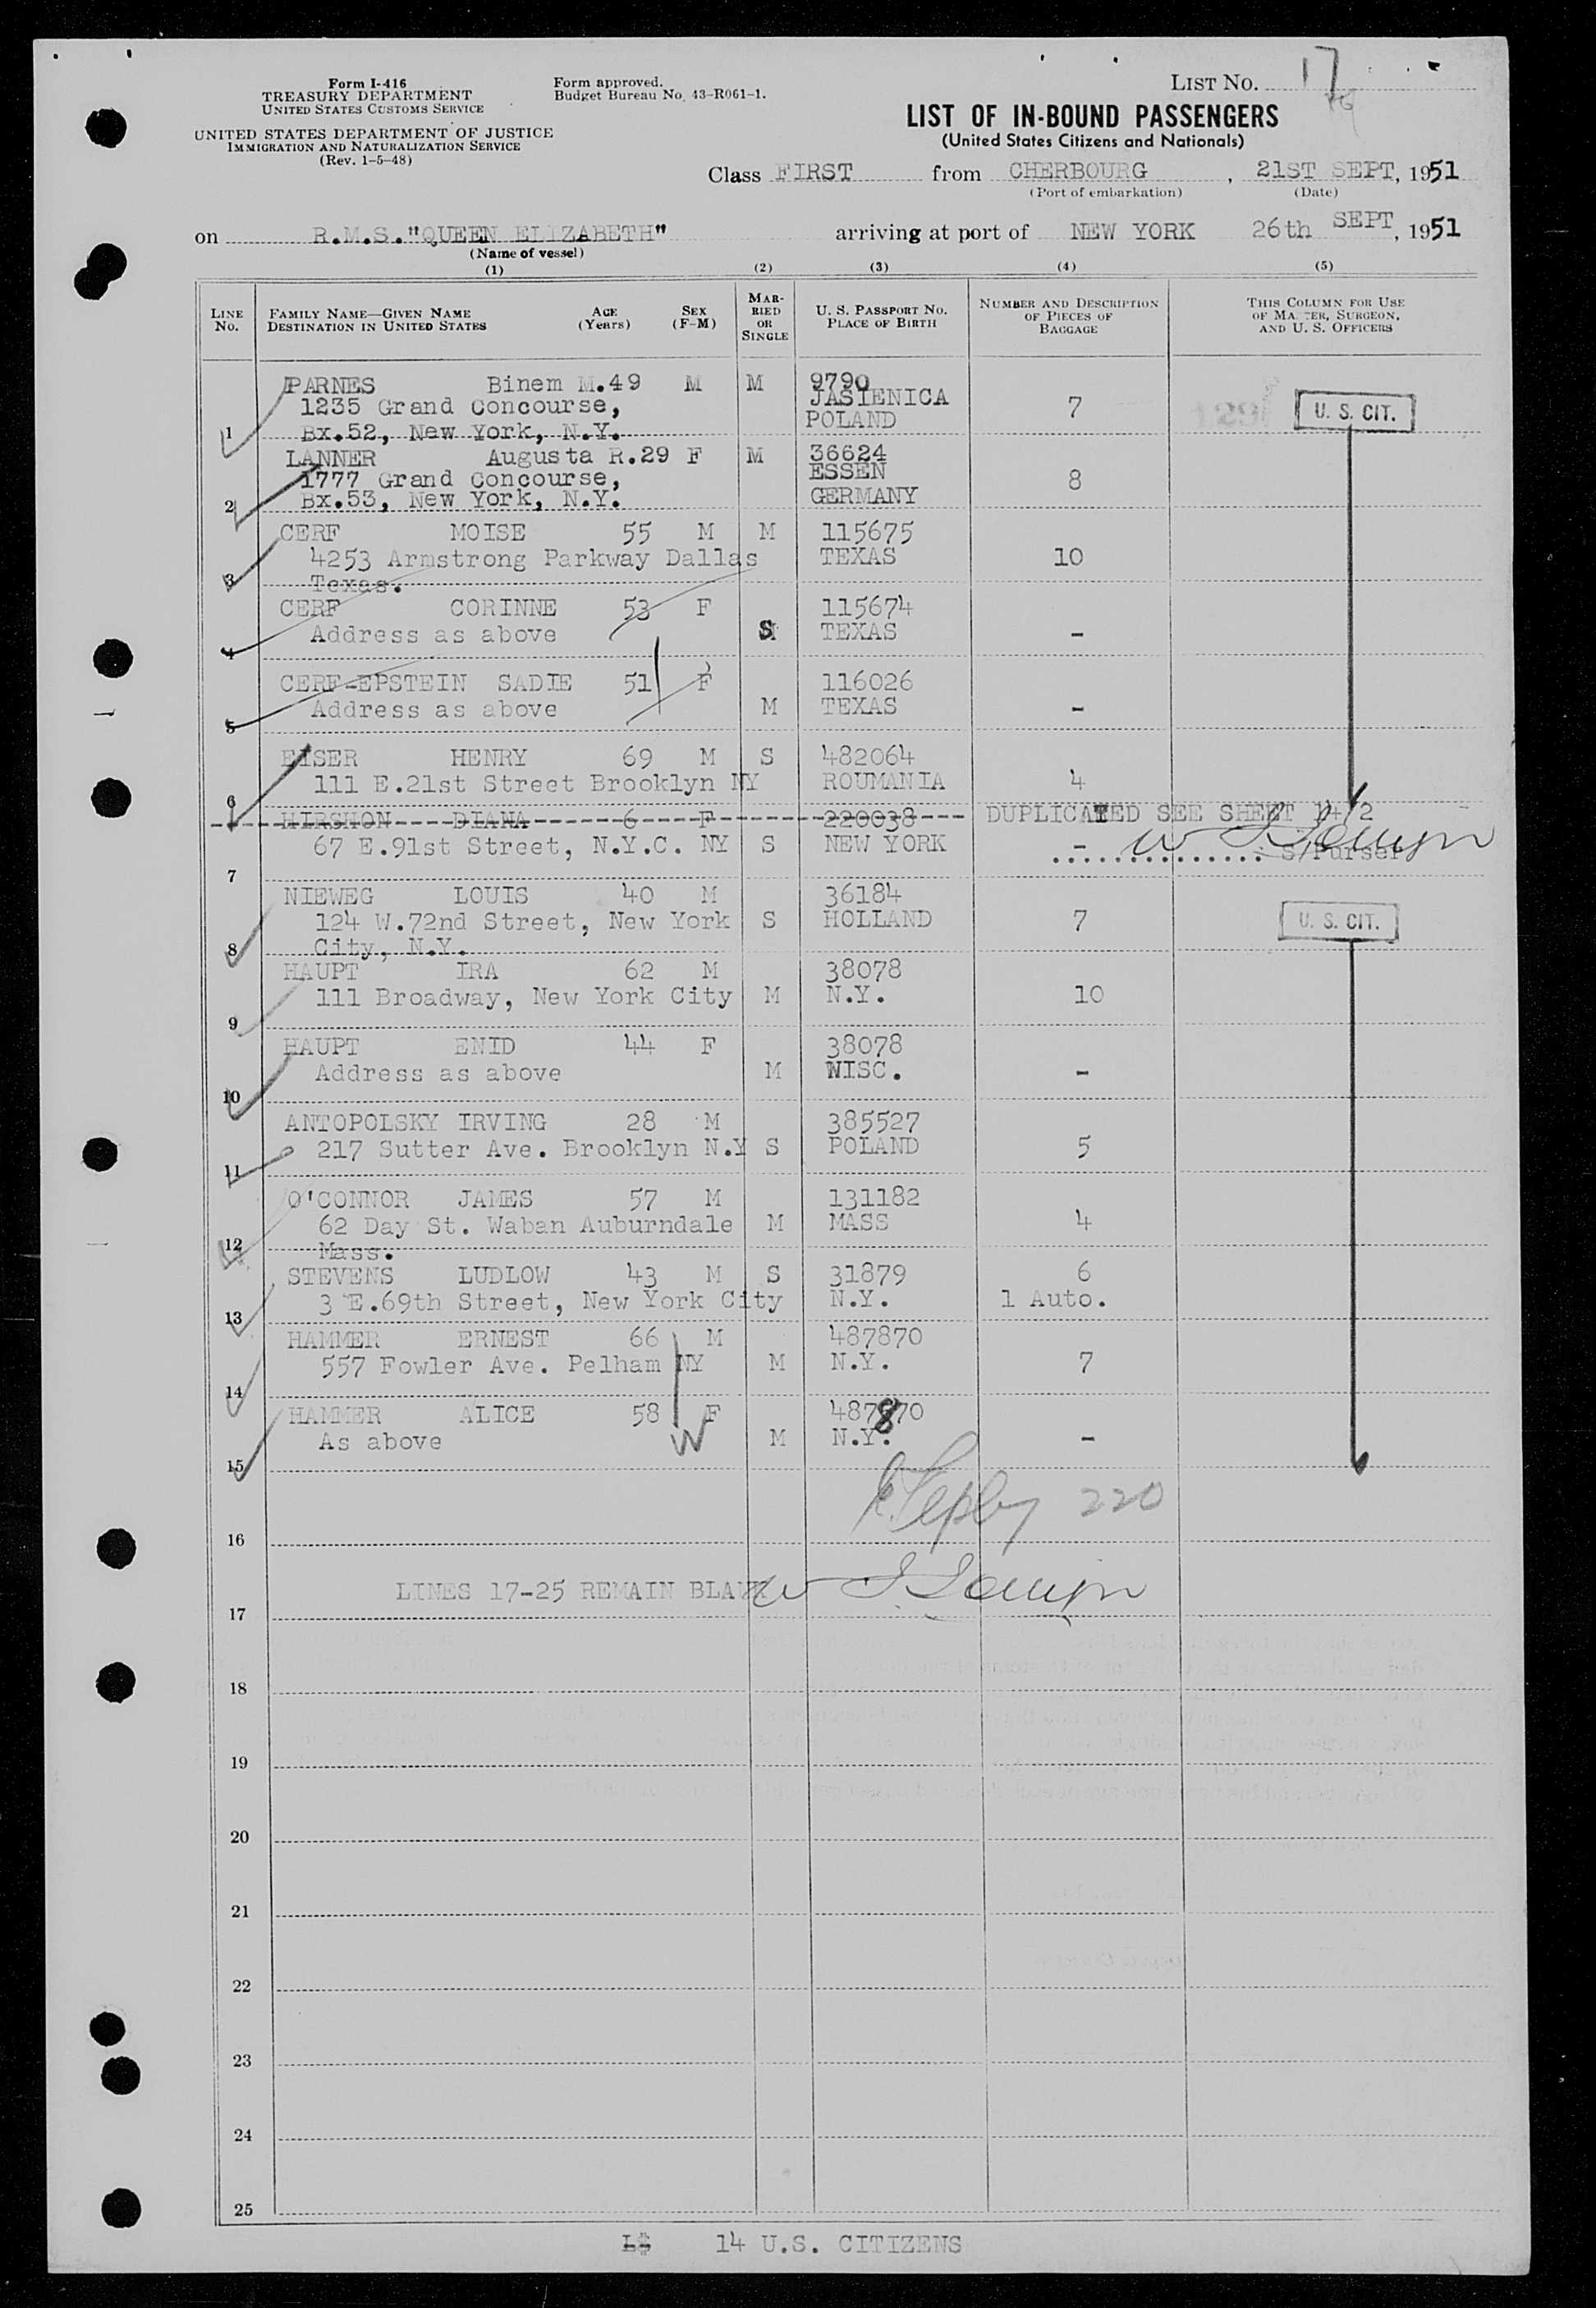 Form I-416
TREASURY DEPARTMENT
UNITED STATES CUSTOMS SERVICE
UNITED STATES DEPARTMENT OF JUSTICE
IMMIGRATION AND NATURALIZATION SERVICE
(Rev. 1-5-48)
Form approved.
Budget Bureau No. 43-R061-1.
LIST NO. 17
LIST OF IN-BOUND PASSENGERS
(United States Citizens and Nationals)
Class FIRST from CHERBOURG, 21ST SEPT, 1951
(Port of embarkation) (Date)
on R.M.S."QUEEN ELIZABETH" arriving at port of NEW YORK 26th SEPT, 1951
(Name of vessel)
(1) (2) (3) (4) (5)
LINE NO.
FAMILY NAME—GIVEN NAME AGE SEX
DESTINATION IN UNITED STATES (Years) (F-M)
MARRIED OR SINGLE
U. S. PASSPORT NO.
PLACE OF BIRTH
NUMBER AND DESCRIPTION
OF PIECES OF
BAGGAGE
THIS COLUMN FOR USE
OF MASTER, SURGEON,
AND U. S. OFFICERS
PARNES Binem M. 49 M M 9790
1235 Grand Concourse, JASIENICA 7 U. S. CIT.
1 Bx.52, New York, N.Y. POLAND
LANNER Augusta R. 29 F M 36624
1777 Grand Concourse, ESSEN 8
2 Bx.53, New York, N.Y. GERMANY
CERF MOISE 55 M M 115675
4253 Armstrong Parkway Dallas TEXAS 10
3 Texas.
CERF CORINNE 53 F 115674
Address as above S TEXAS -
4
CERF-EPSTEIN SADIE 51 F 116026
Address as above M TEXAS -
5
EISER HENRY 69 M S 482064
111 E.21st Street Brooklyn NY ROUMANIA 4
6
HIRSHON DIANA 6 F 220038 DUPLICATED SEE SHEET 14/2
67 E.91st Street, N.Y.C. NY S NEW YORK - S/Purser
7
NIEWEG LOUIS 40 M 36184
124 W.72nd Street, New York S HOLLAND 7 U. S. CIT.
8 City, N.Y.
HAUPT IRA 62 M 38078
111 Broadway, New York City M N.Y. 10
9
HAUPT ENID 44 F 38078
Address as above M WISC. -
10
ANTOPOLSKY IRVING 28 M 385527
217 Sutter Ave. Brooklyn N.Y S POLAND 5
11
O'CONNOR JAMES 57 M 131182
62 Day St. Waban Auburndale M MASS 4
12 Mass.
STEVENS LUDLOW 43 M S 31879 6
3 E.69th Street, New York City N.Y. 1 Auto.
13
HAMMER ERNEST 66 M 487870
557 Fowler Ave. Pelham NY M N.Y. 7
14
HAMMER ALICE 58 F 487870
As above W M N.Y. -
15
220
16
LINES 17-25 REMAIN BLANK
17
18
19
20
21
22
23
24
25
14 U.S. CITIZENS